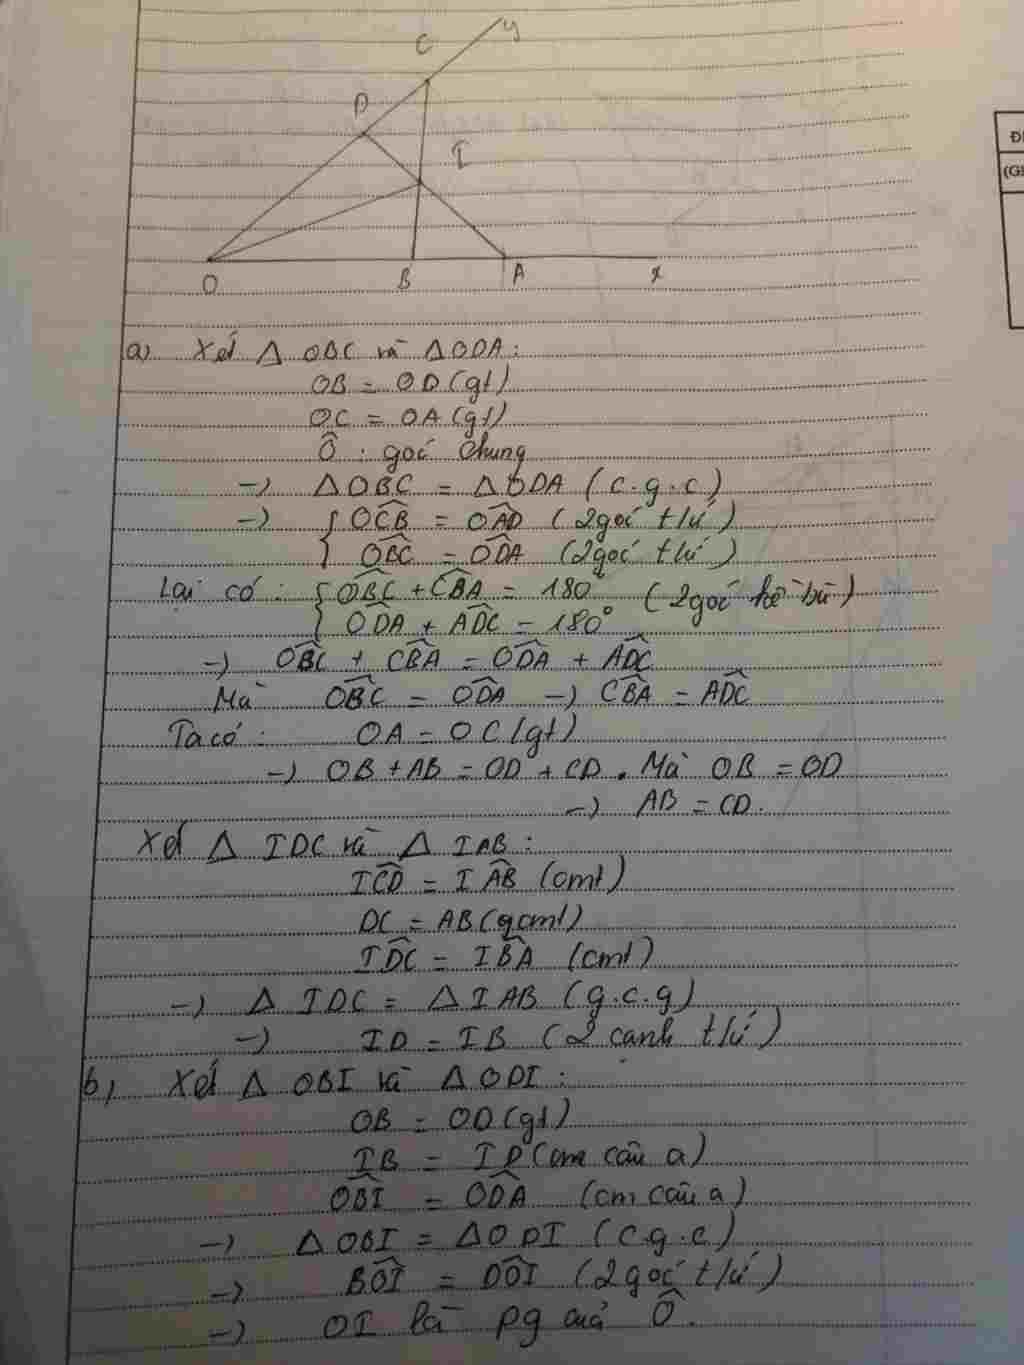 y
C
D
I
O B A x
a) Xét Δ OBC và ΔODA:
OB = OD (gt)
OC = OA (gt)
Ô : góc chung
→ ΔOBC = ΔODA (c.g.c)
→ { OĈB = OÂD (2 góc t/ứ)
OB̂C = OD̂A (2 góc t/ứ)
Lại có : { OB̂C + CB̂A = 180° (2 góc kề bù)
OD̂A + AD̂C = 180°
→ OB̂C + CB̂A = OD̂A + AD̂C
Mà OB̂C = OD̂A → CB̂A = AD̂C
Ta có : OA = OC (gt)
→ OB + AB = OD + CD . Mà OB = OD
→ AB = CD.
Xét Δ IDC và Δ IAB :
IĈD = IÂB (cmt)
DC = AB (cmt)
ID̂C = IB̂A (cmt)
→ Δ IDC = Δ IAB (g.c.g)
→ ID = IB (2 cạnh t/ứ)
b) Xét Δ OBI và Δ ODI :
OB = OD (gt)
IB = ID (cm câu a)
OB̂I = OD̂A (cm câu a)
→ ΔOBI = ΔODI (c.g.c)
→ BÔI = DÔI (2 góc t/ứ)
→ OI là pg của Ô.